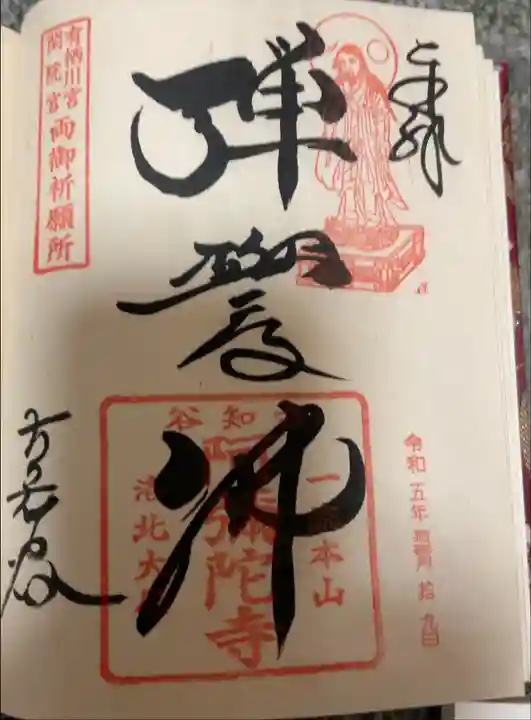 奉拝
令和 五年 拾 九日
弾
誓
佛
古知谷
一流本山
阿弥陀寺
洛北大原
有栖川宮
閑院宮
両御祈願所